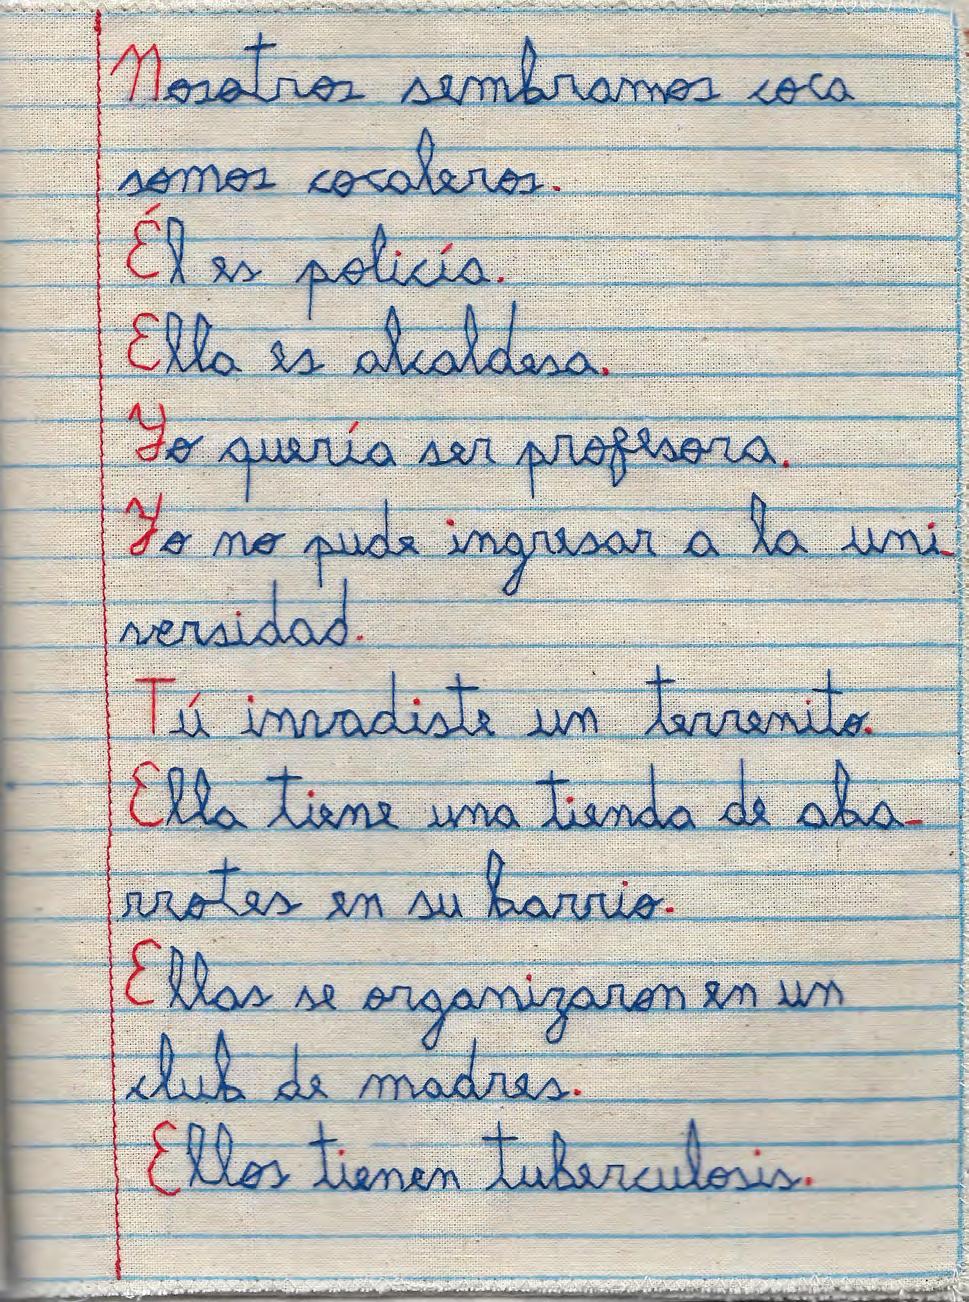 Nosotros sembramos coca
somos cocaleros.
Él es policía.
Ella es alcaldesa.
Yo quería ser profesora.
Yo no pude ingresar a la uni-
versidad.
Tú invadiste un terrenito.
Ella tiene una tienda de aba-
rrotes en su barrio.
Ellas se organizaron en un
club de madres.
Ellos tienen tuberculosis.